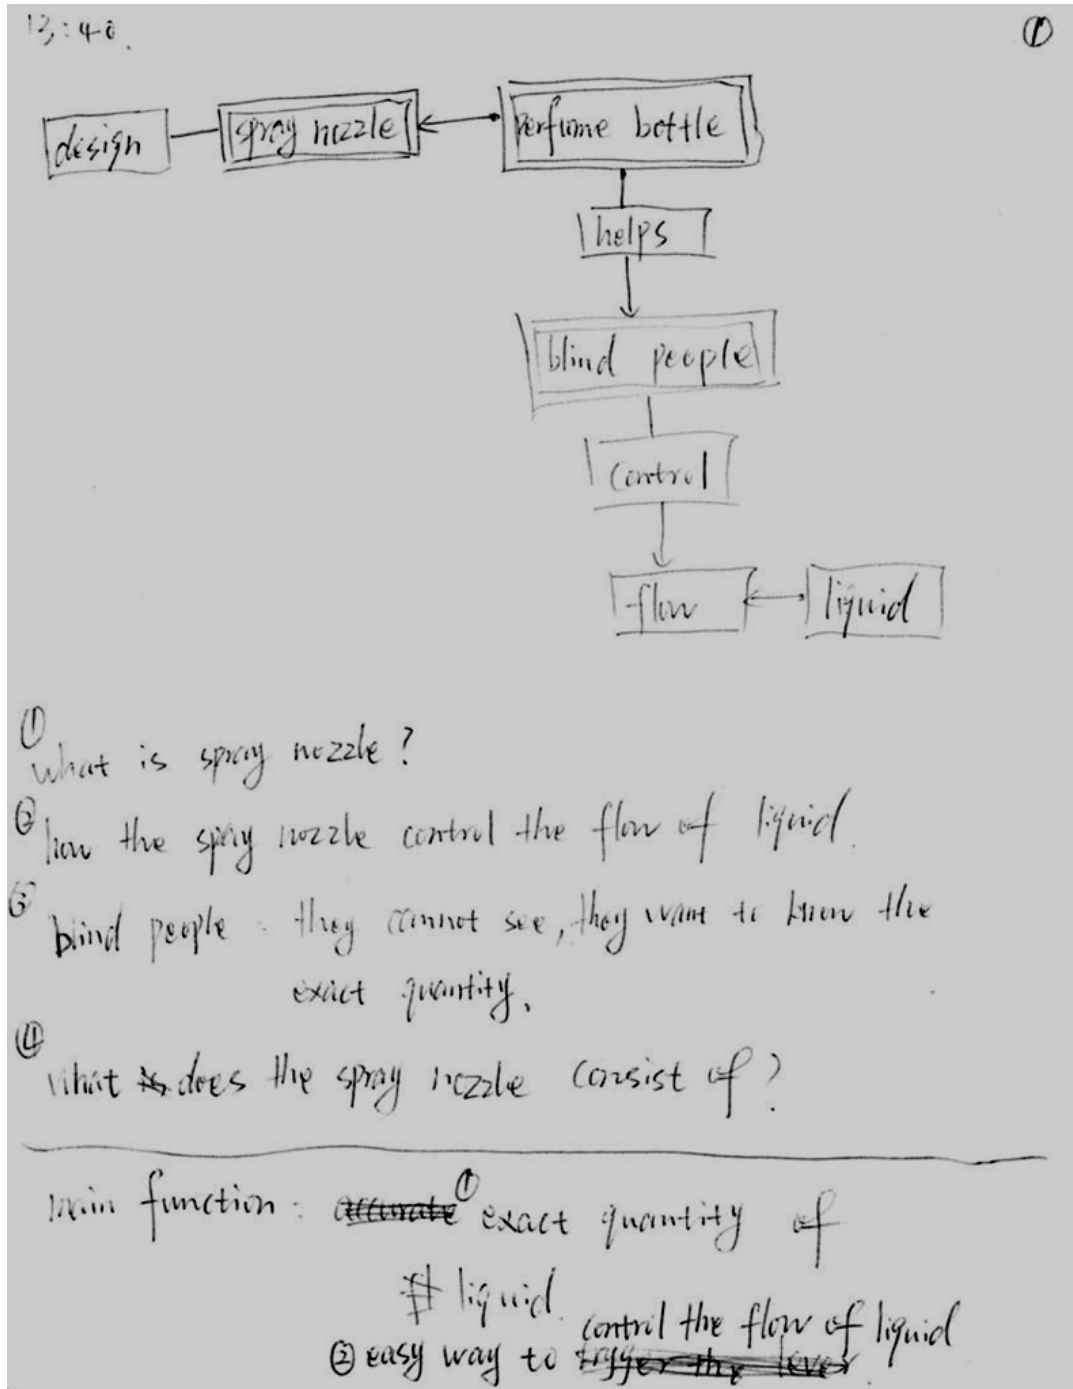 13:40.
①
design
spray nozzle
perfume bottle
helps
blind people
control
flow
liquid
①
what is spray nozzle?
② how the spray nozzle control the flow of liquid.
③ blind people: they cannot see, they want to know the
exact quantity.
④
what is does the spray nozzle consist of?
main function: accurate ① exact quantity of
liquid.
control the flow of liquid
② easy way to trigger the lever